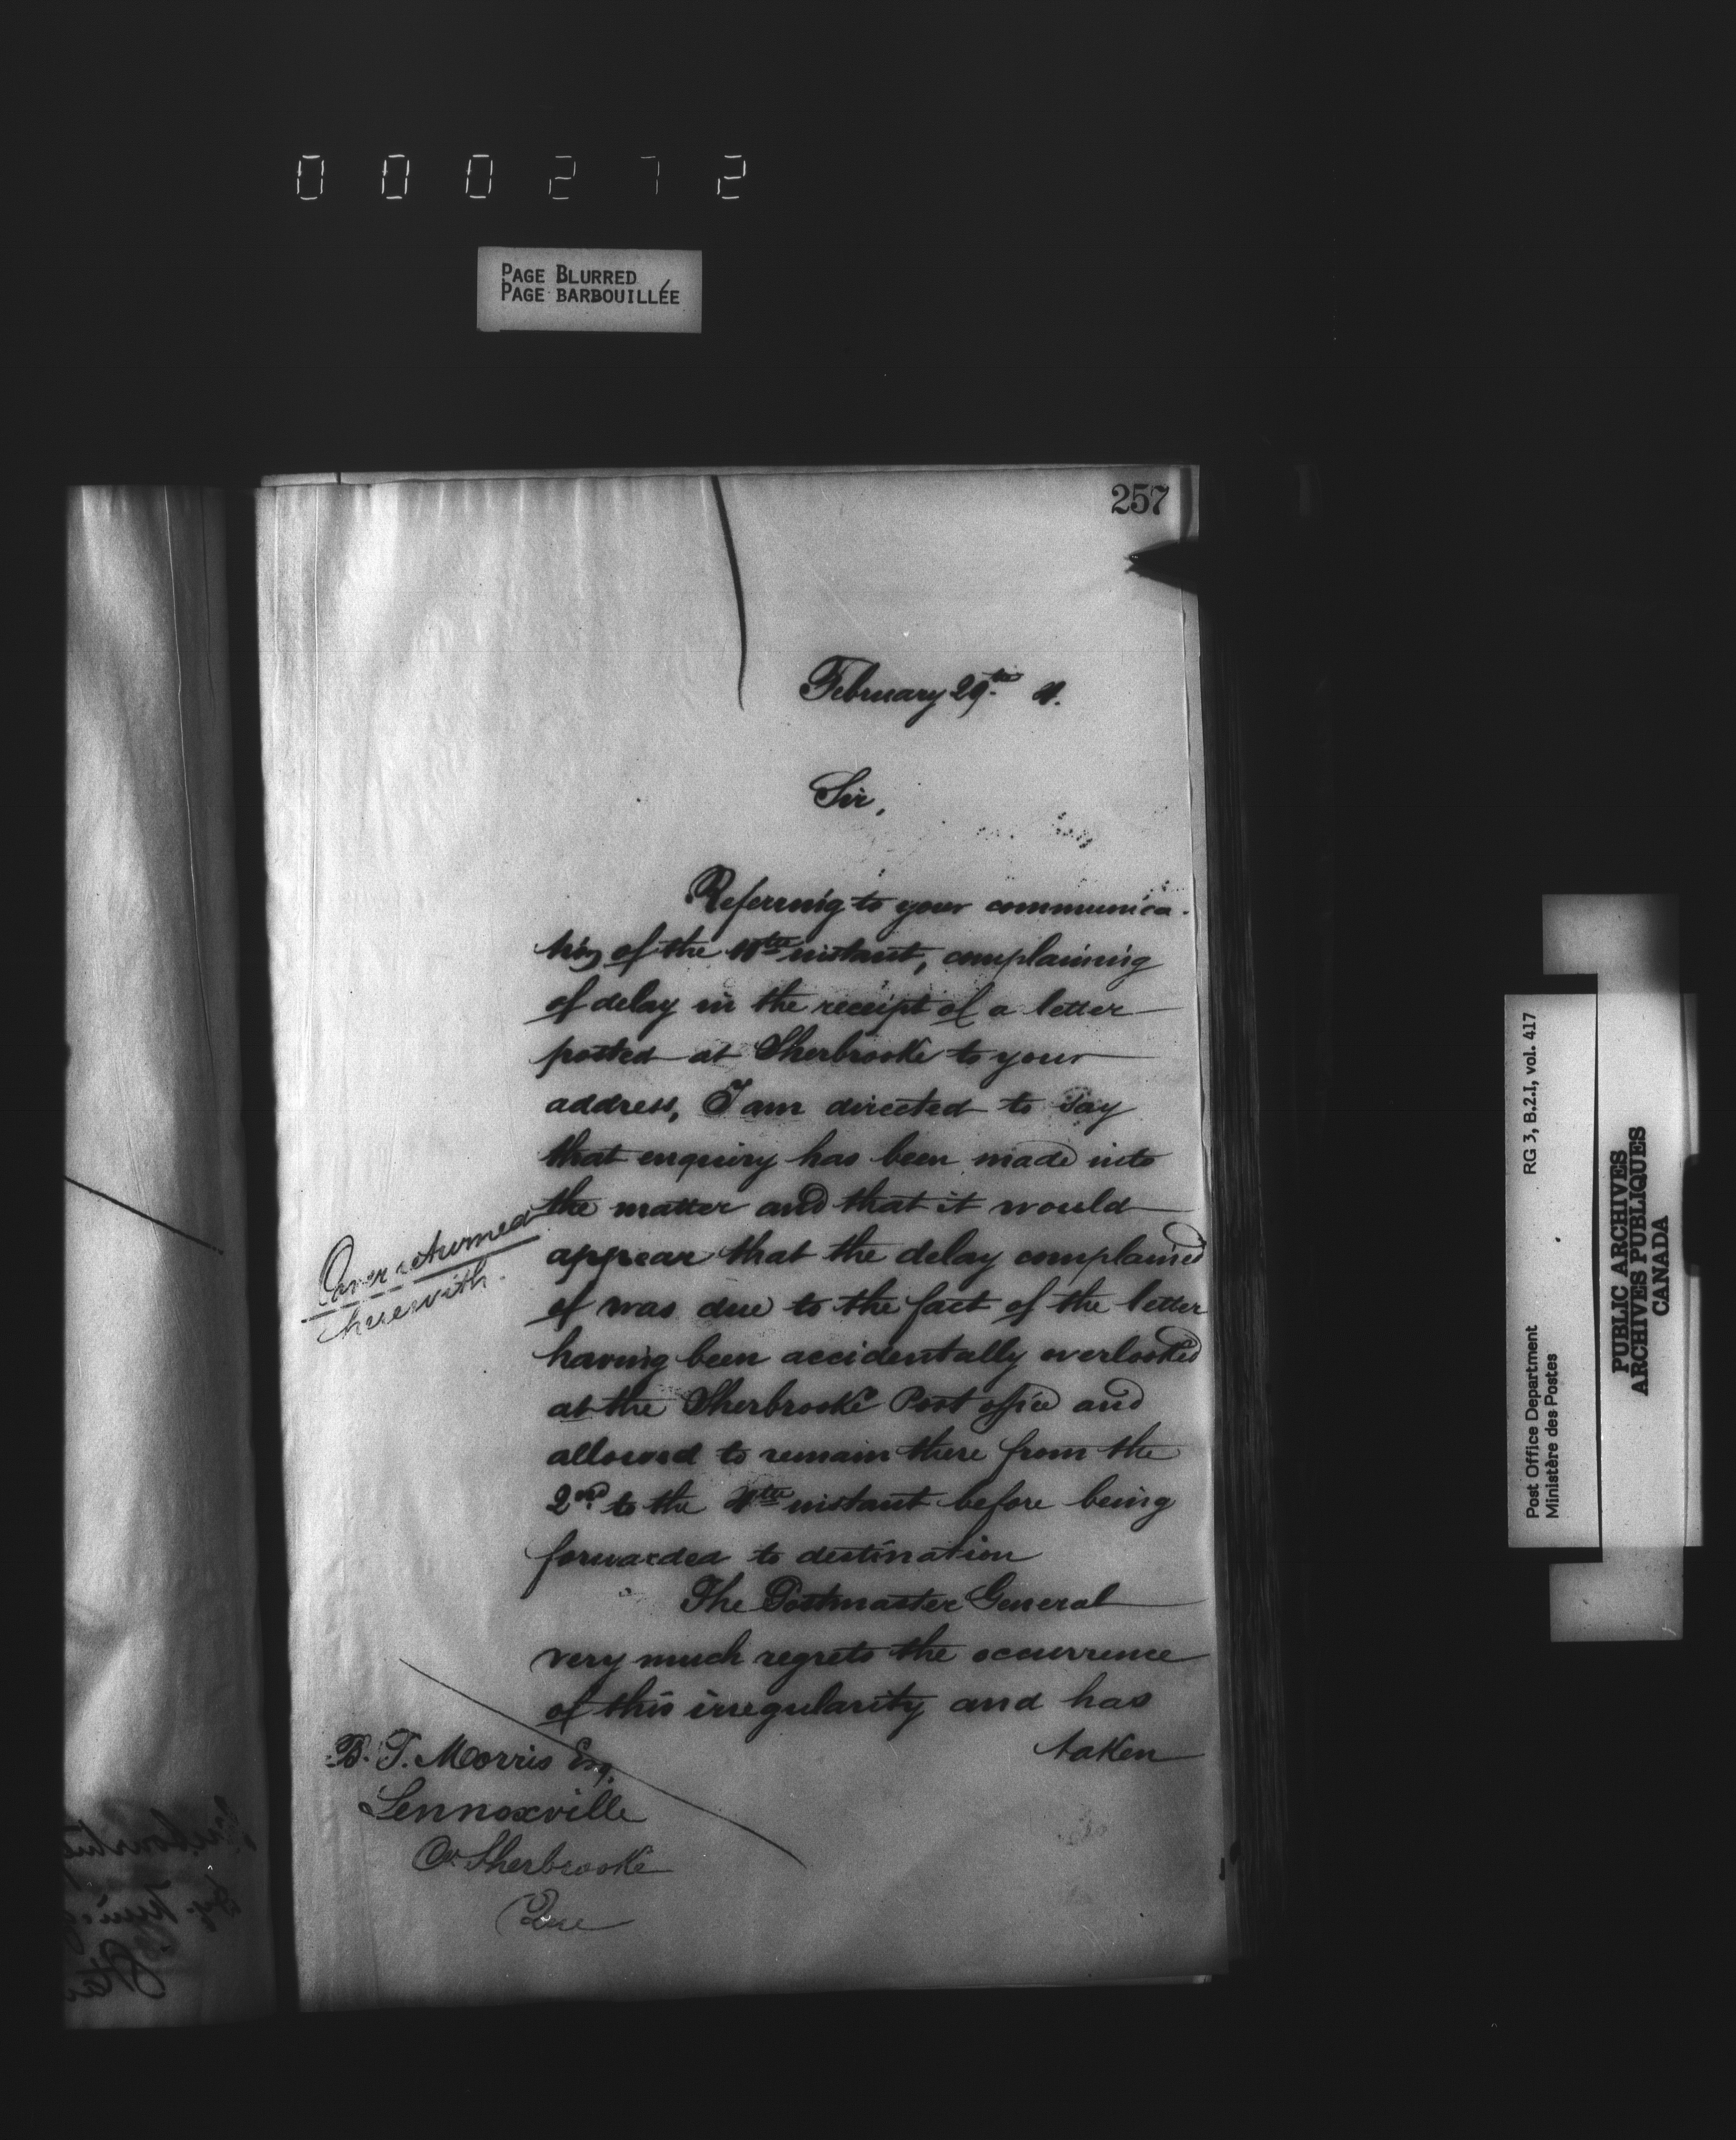 000272
PAGE BLURRED
PAGE BARBOUILLÉE
257
February 29th
Sir,
Referring to your communica-
tion of the instant, complaining
of delay in the receipt of a letter
posted at Sherbrooke to your
address, I am directed to say
that enquiry has been made into
the matter and that it would
appear that the delay complained
of was due to the fact of the letter
having been accidentally overlooked
at the Sherbrooke Post office and
allowed to remain there from the
2nd to the instant before being
forwarded to destination
The Postmaster General
very much regrets the occurrence
of this irregularity and has
taken
Cover returned
herewith.
B. T. Morris Esq.
Lennoxville
Co. Sherbrooke
Que
Post Office Department
Ministère des Postes
RG 3, B.2.I, vol. 417
PUBLIC ARCHIVES
ARCHIVES PUBLIQUES
CANADA